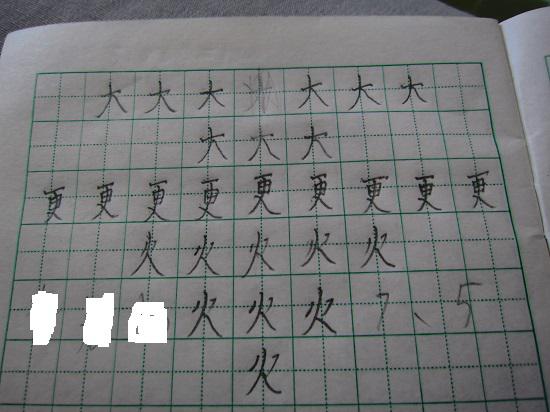 大大大大大大
大大大
更更更更更更更更更
火火火火火
火火火7、5
火